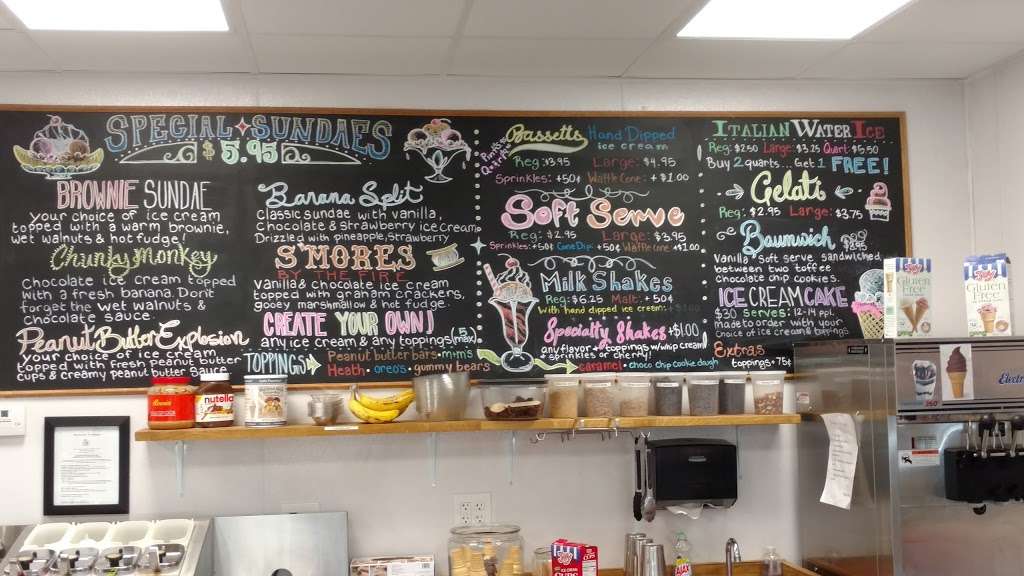 SPECIAL SUNDAES
$5.95
BROWNIE SUNDAE
your choice of ice cream
topped with a warm brownie,
wet walnuts & hot fudge!
Chunky Monkey
Chocolate ice cream topped
with a fresh banana Don't
forget the wet walnuts &
chocolate sauce.
Peanut Butter Explosion
your choice of ice cream
topped with fresh peanut butter
cups & creamy peanut butter sauce
Banana Split
classic sundae with vanilla,
chocolate & strawberry ice cream
Drizzled with pineapple, strawberry
S'MORES
BY THE FIRE
Vanilla & chocolate ice cream
topped with graham crackers,
gooey marshmallow & hot fudge.
CREATE YOUR OWN!
any ice cream & any toppings (max.)
TOPPINGS
Peanut butter bars · m·ms
Heath · oreo's · gummy bears
caramel · choco chip cookie dough
Bassetts Hand Dipped
ice cream
Reg: $3.95 Large: $4.95
Sprinkles: +50¢ Waffle Cone: + $1.00
Soft Serve
Reg: $2.95 Large: $3.95
Sprinkles: +50¢ Cone Dip: +50¢ Waffle Cone: +$1.00
Milk Shakes
Reg: $6.25 Malt: +50¢
With hand dipped ice cream:
Specialty Shakes +$1.00
any flavor + toppings w/whip cream
+ sprinkles or cherry!
ITALIAN WATER ICE
Reg: $2.50 Large: $3.25 Quart: $5.50
Buy 2 quarts, Get 1 FREE!
Gelati
Reg: $2.95 Large: $3.75
Baumwich
Vanilla soft serve sandwiched
between two toffee
chocolate chip cookies.
ICE CREAM CAKE
$30 serves: 12-14 ppl.
made to order with your
choice of ice cream & toppings.
Extras
toppings + 75¢
nutella
Joy
Gluten
Free
Joy
Gluten
Free
360°
Electr
Joy
CUPS
AJAX